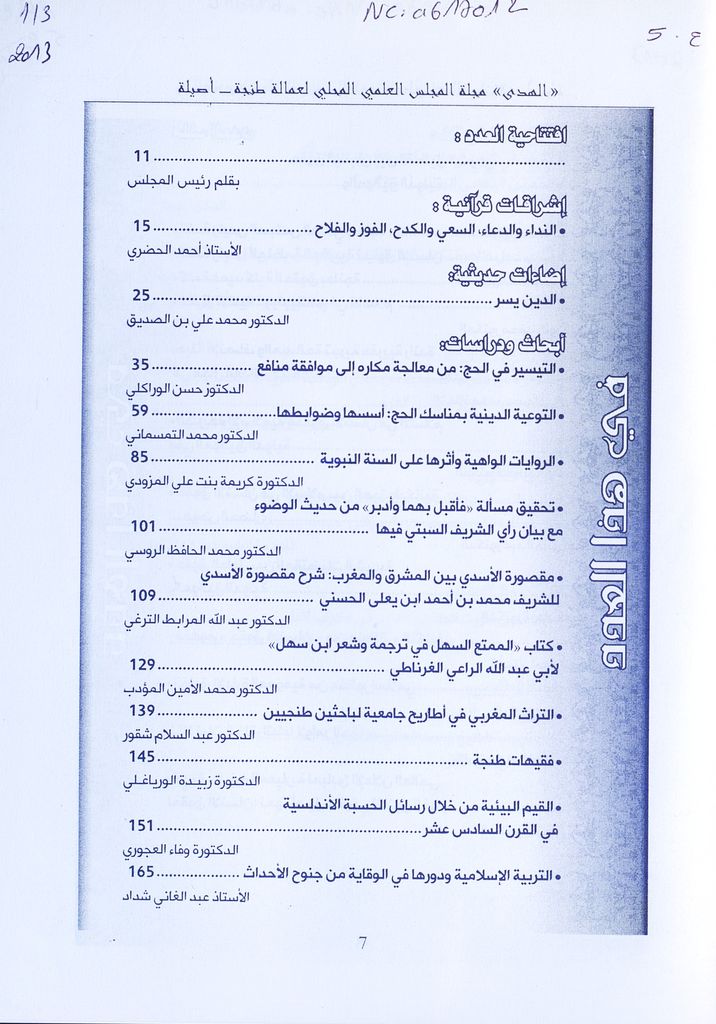 113
2013
NC: a617012
5. ع
«الهدى» مجلة المجلس العلمي المحلي لعمالة طنجة ـ أصيلة
افتتاحية العدد:
11
بقلم رئيس المجلس
إشراقات قرآنية:
• النداء والدعاء، السعي والكدح، الفوز والفلاح ..................... 15
الأستاذ أحمد الحضري
إضاءات حديثية:
• الدين يسر ..................... 25
الدكتور محمد علي بن الصديق
أبحاث ودراسات:
• التيسير في الحج: من معالجة مكاره إلى موافقة منافع ..................... 35
الدكتوز حسن الوراكلي
• التوعية الدينية بمناسك الحج: أسسها وضوابطها ..................... 59
الدكتور محمد التمسماني
• الروايات الواهية وأثرها على السنة النبوية ..................... 85
الدكتورة كريمة بنت علي المزودي
• تحقيق مسألة «فأقبل بهما وأدبر» من حديث الوضوء
مع بيان رأي الشريف السبتي فيها ..................... 101
الدكتور محمد الحافظ الروسي
• مقصورة الأسدي بين المشرق والمغرب: شرح مقصورة الأسدي
للشريف محمد بن أحمد ابن يعلى الحسني ..................... 109
الدكتور عبد الله المرابط الترغي
• كتاب «الممتع السهل في ترجمة وشعر ابن سهل»
لأبي عبد الله الراعي الغرناطي ..................... 129
الدكتور محمد الأمين المؤدب
• التراث المغربي في أطاريح جامعية لباحثين طنجيين ..................... 139
الدكتور عبد السلام شقور
• فقيهات طنجة ..................... 145
الدكتورة زبيدة الورياغلي
• القيم البيئية من خلال رسائل الحسبة الأندلسية
في القرن السادس عشر ..................... 151
الدكتورة وفاء العجوري
• التربية الإسلامية ودورها في الوقاية من جنوح الأحداث ..................... 165
الأستاذ عبد الغاني شداد
في هذا العدد
7